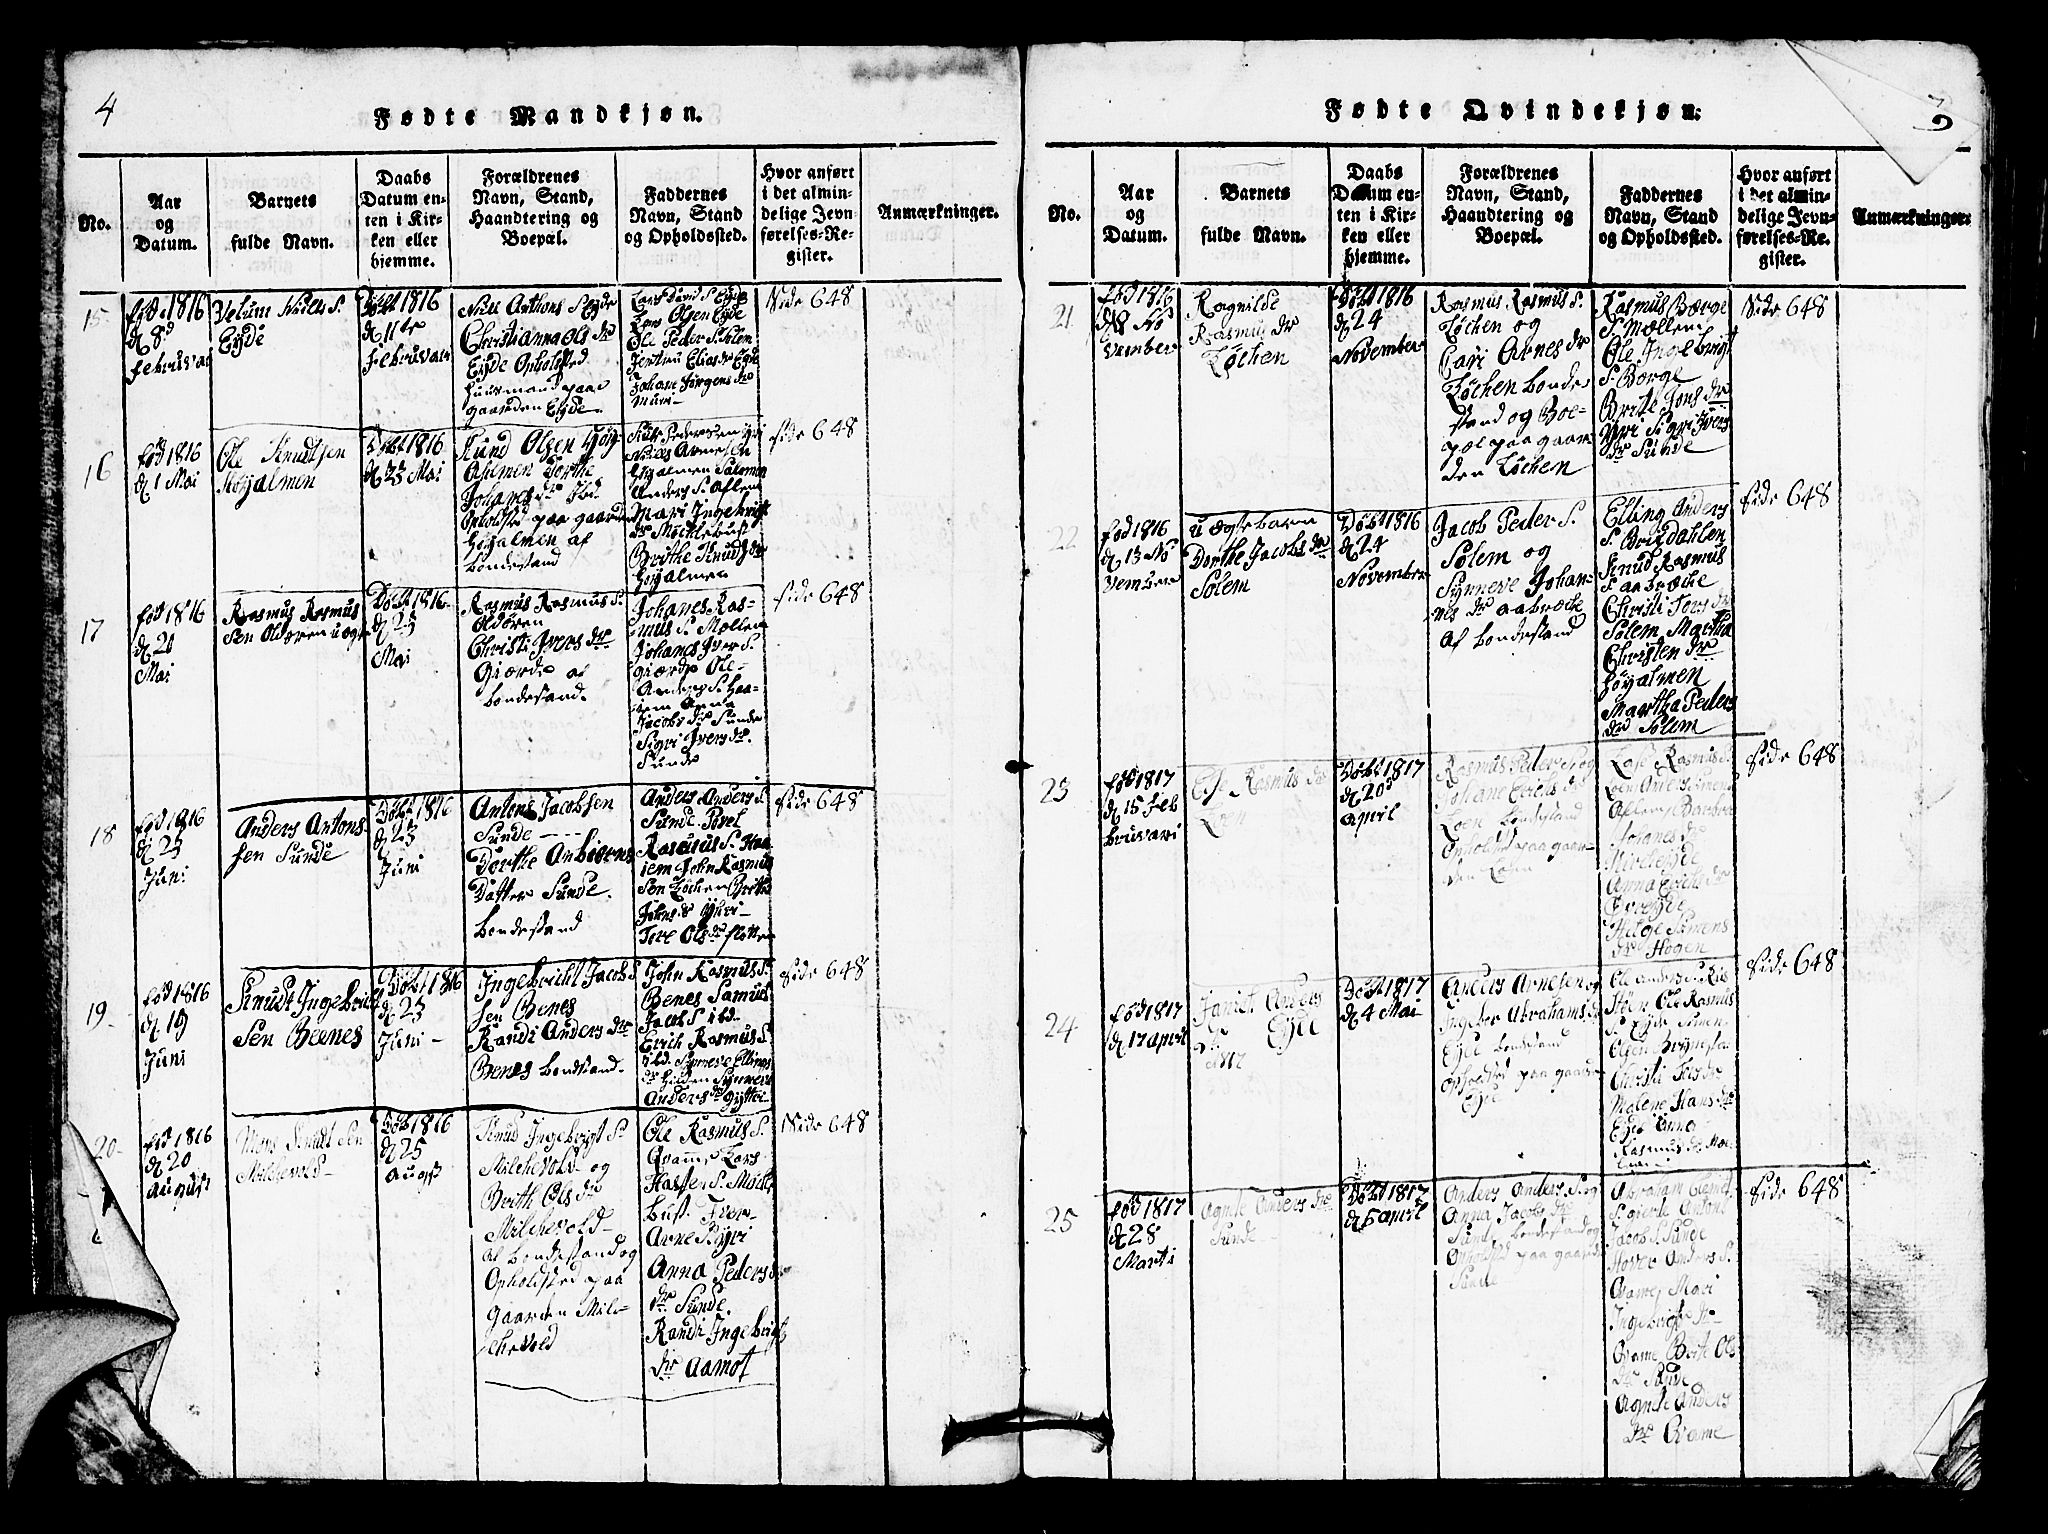 4
Fødte Mandkjøn.
No.
Aar
og
Datum.
Barnets
fulde Navn.
Daabs
Datum en-
ten i Kir-
ken eller
hjemme.
Forældrenes
Navn, Stand,
Haandtering og
Boepæl.
Faddernes
Navn, Stand
og Opholdssted.
Hvor anført
i det almin-
delige Jevn-
førelses-Re-
gister.
Anmærkninger.
15
fød 1816
d 8d
februvari
Niels S.
Eyde
Døbt 1816
d 11te
februvari
Niels Anthons S. Eyde
Christianna Ols dr
Eyde Opholdsted
huusmand paa
gaarden Eyde
Lars S. Eyde
Lars Olsen Eyde
Ole Peder S. Solem
Elias dr Eyde
Johane Jørgens dr
Muri
Side 648
16
fød 1816
d 1 Mai
Ole Knudtsen
Høyalmen
Døbt 1816
d 23 Mai
Knud Olsen Høy-
Almen Dorthe
Johanes dr Ibd.
Opholdsted paa gaarden
Høyalmen af
bondestand
Pedersen
Niels Arnesen
Høyalmen Salomon
Anders S. Aflem
Mari Ingebrigt
dr Mocklebust
Brithe Knuds dr
Høyalmen
Side 648
17
fød 1816
d 20
Mai
Rasmus Rasmus
Sen Oldøren uægte
Døbt 1816
d 23
Mai
Rasmus Rasmus S.
Oldøren
Christi Ivers dr
Giærde af
bondestand.
Johanes Ras-
mus S. Mollem
Johanes Iver S.
Giærde Ole
Anders S. Haa-
iem Anna
Jacobs dr Sunde
Sigri Ivers dr.
Sunde
Side 648
18
fød 1816
d 23
Juni
Anders Antons-
sen Sunde
Døbt 1816
d 23
Juni
Antons Jacobsen
Sunde
Dorthe Anbiørns
Datter Sunde.
bondestand
Anders Anders S.
Sunde Povel
Rasmus S. Haa-
iem John Rasmus
Sen Løchen Brithe
Johns d Yhri
Tore Ols dr Flotten
Side 648
19
fød 1816
d 19
Juni
Knudt Ingebricht
Sen Beenes
Døbt 1816
d 23
Juni
Ingebricht Jacob S.
sen Benes
Randi Anders dr
Benes bondestand.
John Rasmus S.
Benes Samuel
Jacob S ibd.
Erich Rasmus S.
ibd. Synneve Ellings
dr Hilden Synneve
Anders dr Gytteie
Side 648
20
fød 1816
d 20
August
Mons Knudt Sen
Mildevold
Døbt 1816
d 25
Augst
Knud Ingebrigt S.
Milchevold og
Brith Ols dr
Milchevold
Af bondestand og
Opholdsted paa
Gaarden Mil-
chevold
Ole Rasmus S.
Qvame Lars
Hassen S. Mockle
bust Iver
Arne S. Yri
Anna Peders
dr. Sunde.
Randi Ingebrigt
dr Aamot
Side 648
3
Fødte Qvindekjøn.
No.
Aar
og
Datum.
Barnets
fulde Navn.
Daabs
Datum en-
ten i Kir-
ken eller
hjemme.
Forældrenes
Navn, Stand,
Haandtering og
Boepæl.
Faddernes
Navn, Stand
og Opholdssted.
Hvor anført
i det almin-
delige Jevn-
førelses-Re-
gister.
Anmærkninger.
21
fød 1816
d 18 No
vember
Ragnilde
Rasmus dr
Løchen
Døbt 1816
d 24
November
Rasmus Rasmus S.
Løchen og
Cari Arnes dr
Løchen bonde
stand og Boe-
pæl paa gaar-
den Løchen
Rasmus Børge
S. Mollem
Ole Ingebrigt
S. Borge
Brithe Jons dr
Yri Sigri Ivers
dr Sunde
Side 648
22
fød 1816
d 13 No
vember
uægte barn
Dorthe Jacobs dr
Solem
Døbt 1816
d 24
November
Jacob Peder S.
Solem og
Synneve Johan-
nes dr Aabrøcke
Af bondestand
Elling Anders
S. Brixdahlen
Knud Rasmus
S. Aabrøcke
Christi Tors dr
Solem Martha
Christen dr
Høyalmen
Martha Peders
dr Solem
Side 648
23
fød 1817
d 15 Feb
bruvari
Else Rasmus dr
Loen
Døbt 1817
d 20
April
Rasmus Peder S. og
Johane Erichs dr
Loen bondestand
Opholdsted paa gaar-
den Loen
Rasmus S.
Loen
Aflem Barbroe
Johanes dr
Anna Erichs dr
Helge Simens
dr Hogen
Side 648
24
fød 1817
d 17 April
Anders
dr Eyde
1817
Døbt 1817
d 4 Mai
Anders Arnesen og
Ingebor Abrahams dr
Eyde bondestand
opholdsted paa gaarden
Eyde
Ole Anders S. Ris
Støen Ole Rasmus
S. Eyde Simen
Olsen
Christi Tors dr
Malene Hans dr
Eyde Anna
Rasmus dr
Side 648
25
fød 1817
d 28
Marti
Agnete Anders dr
Sunde
Døbt 1817
d 6 April
Anders Anders S. og
Anna Jacobs dr
Sunde bondestand og
Opholdsted paa gaarden
Sunde
Abraham
S. Antoni
Jacob S. Sunde
Anders S.
Qvame Mari
Ingebrigt dr
Qvame Brite Ols
dr Sunde
Agnete Anders
dr Qvame
Side 648